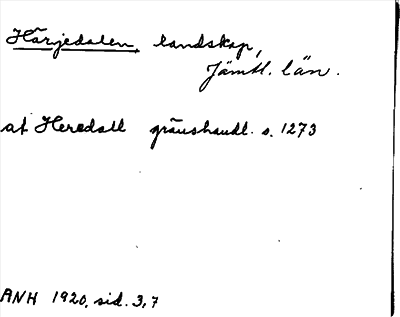 Härjedalen, landskap,
Jämtl. län.
af Heredall gränshandl. s. 1273
ANH 1920, sid. 3,7